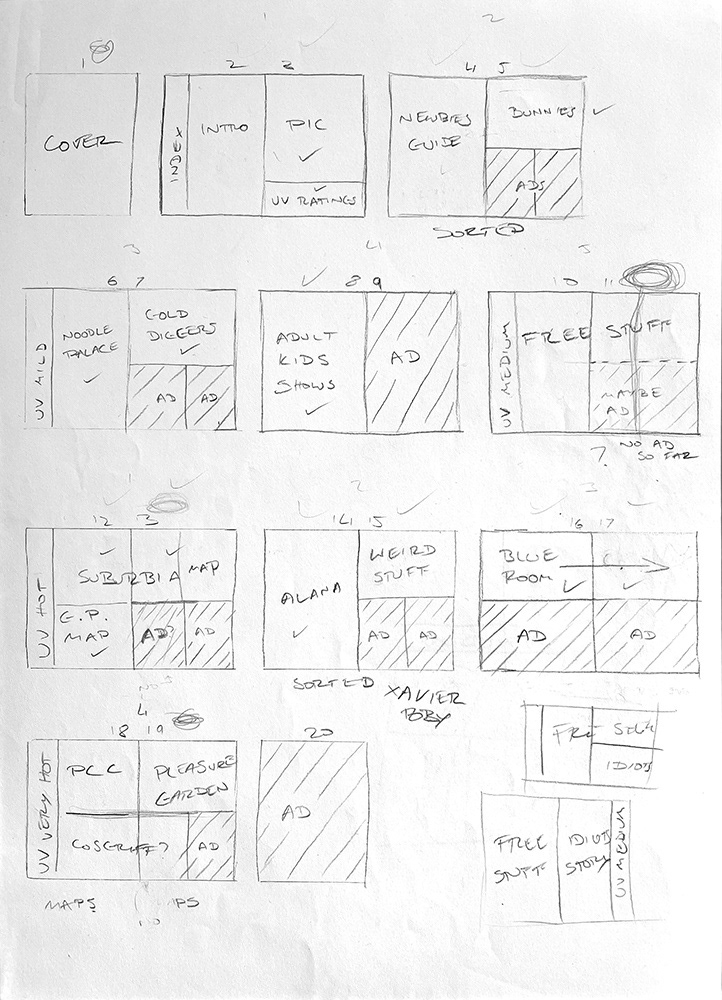 1 2
1
COVER
2 3
INDEX
INTRO
PIC
UV RATINGS
4 5
NEWBIES
GUIDE
BUNNIES
ADS
SORTED
3 4 5
6 7
UV MILD
NOODLE
PALACE
GOLD
DIGGERS
AD AD
8 9
ADULT
KIDS
SHOWS
AD
10 11
UV MEDIUM
FREE STUFF
MAYBE
AD
? NO AD
SO FAR
1 2 3
12 13
UV HOT
SUBURBIA MAP
E.P.
MAP
AD? AD
14 15
ALANA
WEIRD
STUFF
AD AD
SORTED XAVIER
16 17
BLUE
ROOM
AD AD
4
18 19
UV VERY HOT
PCC
PLEASURE
GARDEN
AD
20
AD
MAPS
FREE
IDIOTS
FREE
STUFF
IDIOTS
STORY
UV MEDIUM